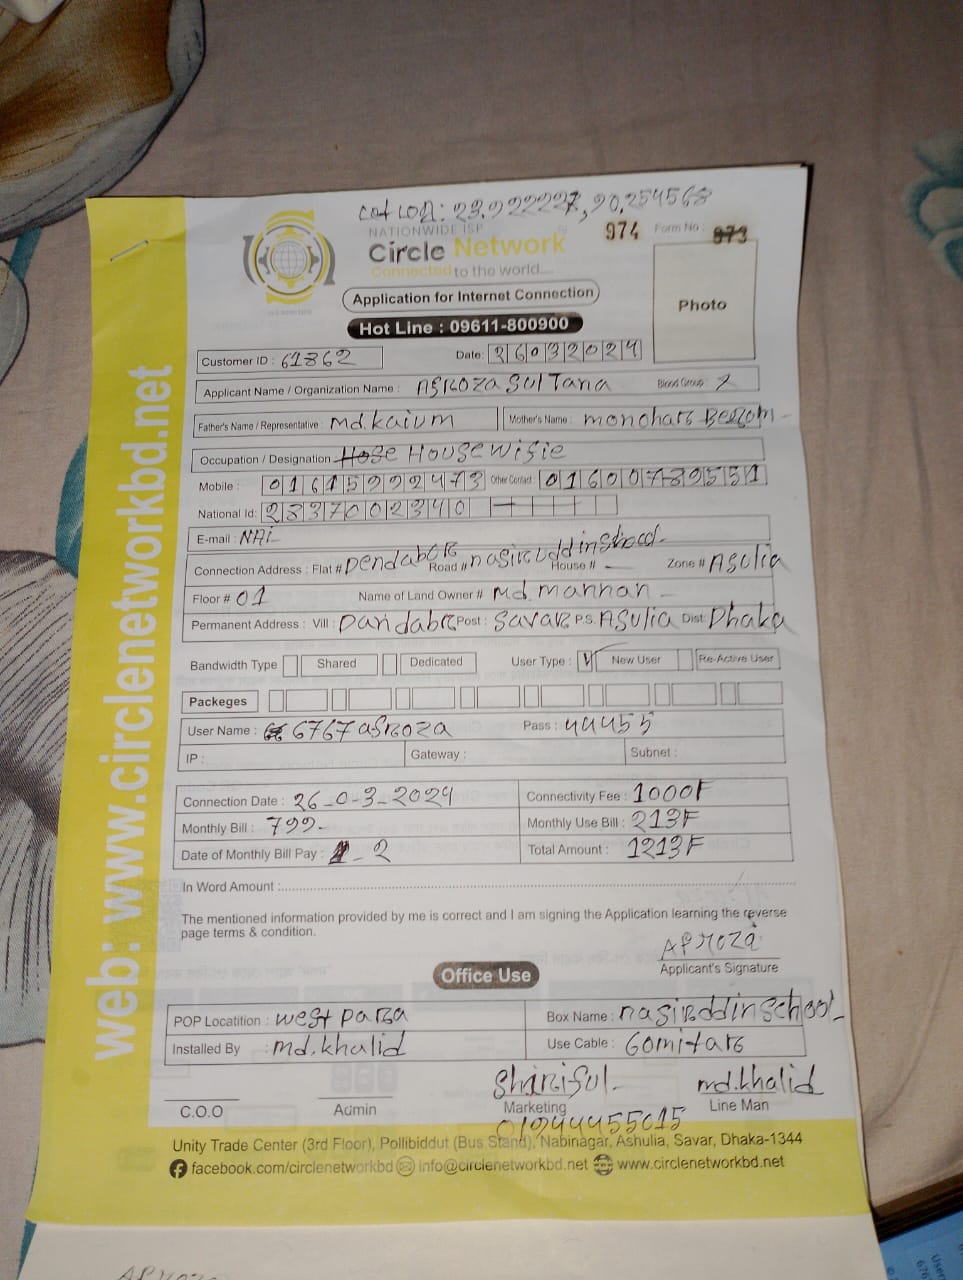 cat lon: 23.922227, 90.254568
NATIONWIDE ISP
974 Form No : 973
Circle Network
Connected to the world....
Photo
Application for Internet Connection
Hot Line : 09611-800900
Customer ID : 61862 Date: 26032024
Applicant Name / Organization Name : ASROZA SULTANA Blood Group :
Father's Name / Representative : Md.kaium Mother's Name : monohara Begom -
Occupation / Designation Hose Housewife
Mobile : 01615992473 Other Contact : 01600789551
National Id: 2837002340
E-mail : NAI
Connection Address : Flat # Dendabor Road # nasiruddinshool. House # - Zone # ASULIA
Floor # 01 Name of Land Owner # Md. mannan -
Permanent Address : Vill : Dandabor Post : Savar P.S. ASULIA Dist: Dhaka
Bandwidth Type Shared Dedicated User Type : New User Re-Active User
Packeges
User Name : 6767asroza Pass : 44455
IP : Gateway : Subnet :
Connection Date : 26-0-3-2024 Connectivity Fee : 1000F
Monthly Bill : 799- Monthly Use Bill : 213F
Date of Monthly Bill Pay : - 2 Total Amount : 1213F
In Word Amount :
The mentioned information provided by me is correct and I am signing the Application learning the reverse
page terms & condition.
AFROZA
Applicant's Signature
Office Use
POP Locatition : west para Box Name : nasiroddinschool-
Installed By : md.khalid Use Cable : 60mitar
Shiriful- md.khalid
C.O.O Admin Marketing Line Man
01944455015
Unity Trade Center (3rd Floor), Pollibiddut (Bus Stand), Nabinagar, Ashulia, Savar, Dhaka-1344
facebook.com/circlenetworkbd info@circlenetworkbd.net www.circlenetworkbd.net
web: www.circlenetworkbd.net